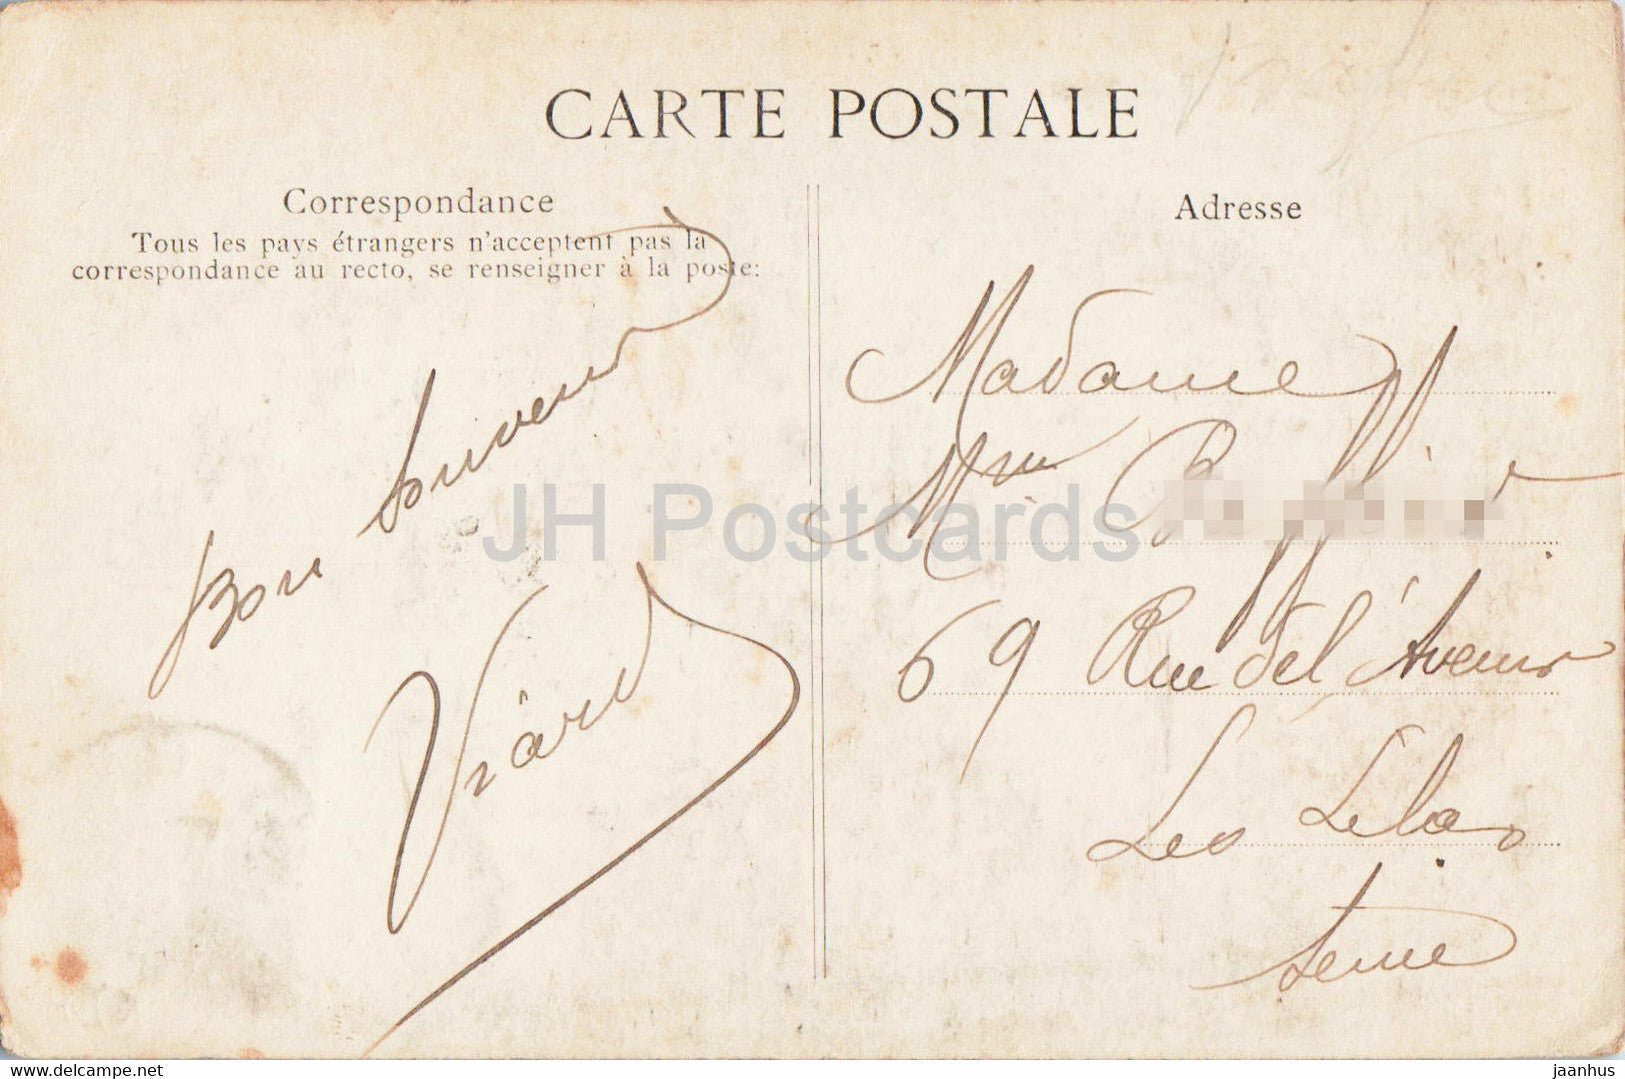 CARTE POSTALE
Correspondance
Tous les pays étrangers n'acceptent pas la
correspondance au recto, se renseigner à la poste:
Bon Souvenir
Viard
Adresse
Madame
Mme
69 Rue de l'Avenir
Les Lilas
Seine
JH Postcards
www.hippostcard.com
jaanhus